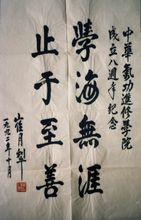 中華氣功進修學院
成立八週年紀念
學海無涯
止于至善
崔月犁
一九九二年十月